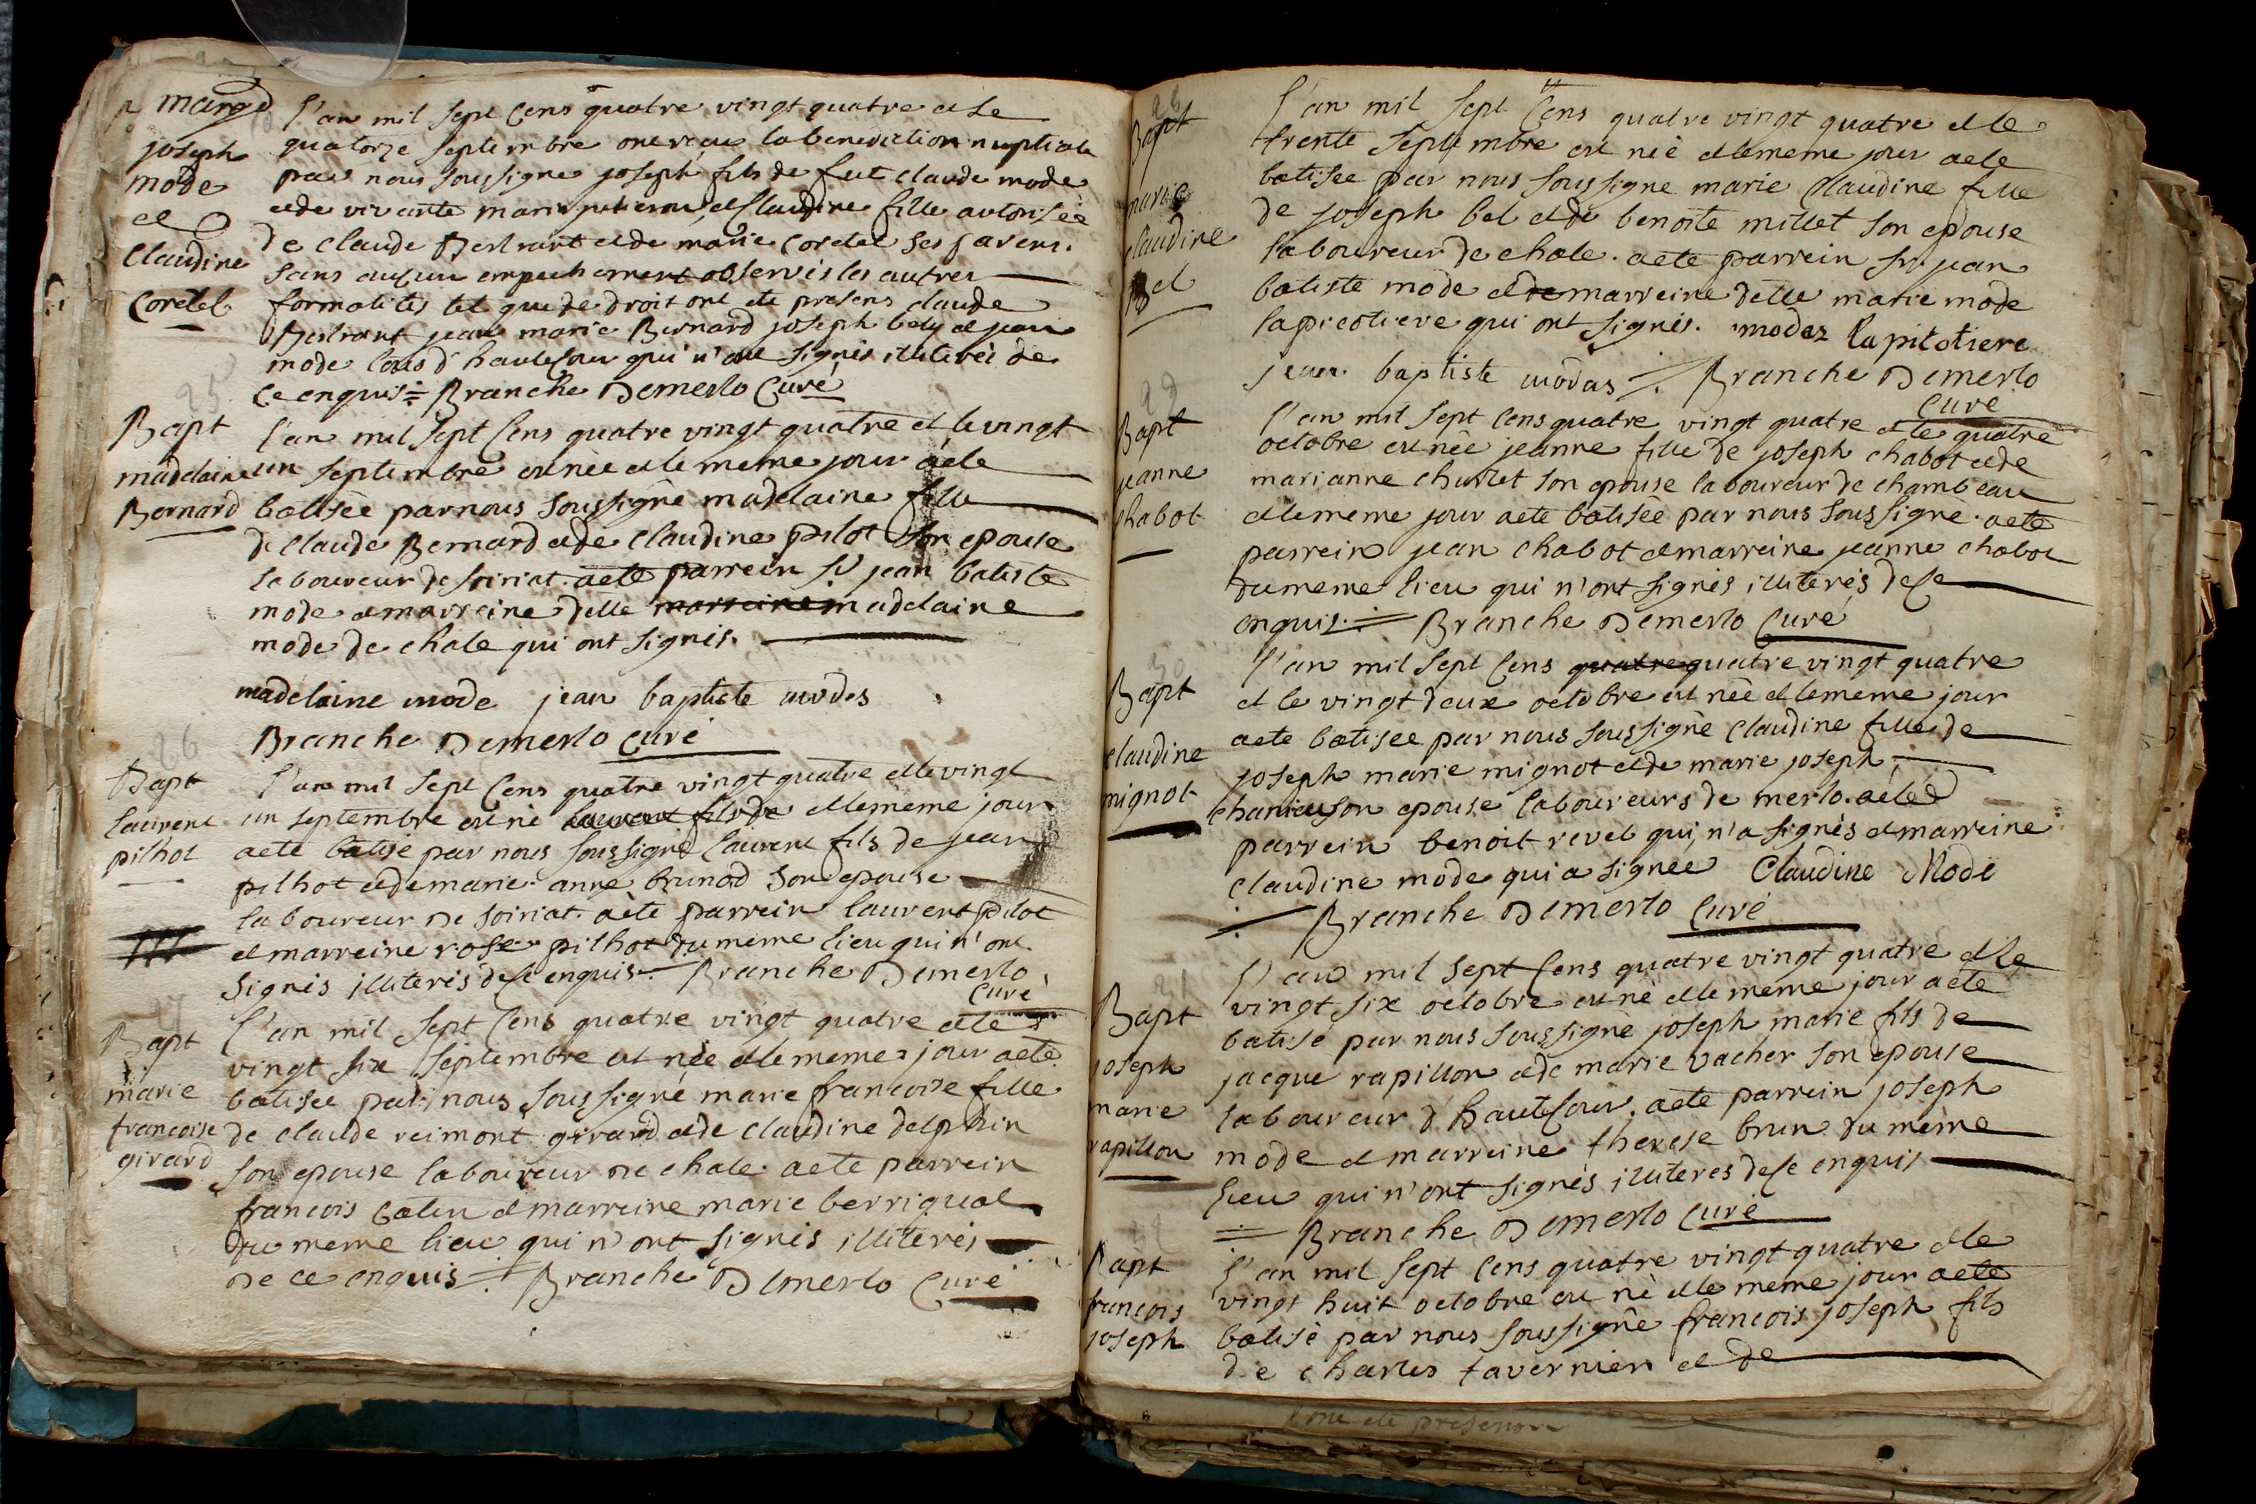 marg
joseph
mode
et
Claudine
Coretel
l'an mil sept Cens quatre vingt quatre et le
quatorze septembre ont recu la benediction nuptiale
par nous soussigne joseph fils de feut claude mode
et de vivante marie et Claudine fille autorisée
de claude Bertrant et de marie coretel ses parens.
sans aucun empechement observés les autres
formalités tel que de droit ont ete presens claude
Bertrant jean marie Bernard joseph bely et jean
mode tous d'hautecour qui n'ont signés illiterés de
ce enquis Branche Demerlo Curé
25
Bapt
madelaine
Bernard
l'an mil sept Cens quatre vingt quatre et le vingt
un septembre est née et le meme jour a ete
batisèe par nous soussigné madelaine fille
de claude Bernard et de claudine pilot son epouse
laboureur de soiriat. a ete parrein sr jean batiste
mode et marreine delle marreine madelaine
mode de chale qui ont signés.
madelaine mode jean baptiste modas
Branche Demerlo curé
26
Bapt
laurent
pilhot
l'an mil sept Cens quatre vingt quatre et le vingt
un septembre est né laurent fils de et le meme jour
a ete batisé par nous soussigné laurent fils de jean
pilhot et de marie anne brunod son epouse
laboureur de soiriat. a ète parrein laurent pilot
et marreine rose pilhot du meme lieu qui n'ont
signés illiterés de ce enquis. Branche Demerlo
Curé
Bapt
marie
francoise
girard
l'an mil sept Cens quatre vingt quatre et le
vingt six septembre est née et le meme jour a ete
batisee par nous soussigné marie francoise fille
de claude reimont girard et de claudine delphin
son epouse laboureur de chale. a ete parrein
francois catin et marreine marie berriquol
du meme lieu qui n'ont signés illiterés
de ce enquis Branche Demerlo Curé
28
Bapt
marie
claudine
Bel
l'an mil sept Cens quatre vingt quatre et le
trente septembre est nèe et le meme jour a ete
batisee par nous soussigne marie Claudine fille
de joseph bel et de benoite millet son epouse
laboureur de chale. a ete parrein sr jean
batiste mode et de marreine delle marie mode
lapicotiere qui ont signés. modaz lapitotiere
jean baptiste modas Branche Demerlo
Curé
29
Bapt
jeanne
chabot
l'an mil sept Cens quatre vingt quatre et le quatre
octobre est nèe jeanne fille de joseph chabot et de
marianne chullet son epouse laboureur de chambeau
et le meme jour a ete batisèe par nous soussigne. a ete
parrein jean chabot et marreine jeanne chabot
du meme lieu qui n'ont signés illiterés de ce
enquis. Branche Demerlo Curé
30
Bapt
claudine
mignot
l'an mil sept Cens quatre quatre vingt quatre
et le vingt deux octobre est née et le meme jour
a ete batisee par nous soussigné Claudine fille de
joseph marie mignot et de marie joseph
son epouse laboureurs de merlo. a ete
parrein benoit revel qui n'a signés et marreine
claudine mode qui a signée Claudine Mode
Branche Demerlo Curé
31
Bapt
joseph
marie
rapillon
l'an mil sept Cens quatre vingt quatre et le
vingt six octobre est né et le meme jour a ete
batisé par nous soussigné joseph marie fils de
jacque rapillon et de marie vacher son epouse
laboureur d'hautecour. a ete parrein joseph
mode et marreine therese brun du même
lieu qui n'ont signés illiteres de ce enquis
Branche Demerlo Curé
Bapt
francois
joseph
l'an mil sept Cens quatre vingt quatre et le
vingt huit octobre est né et le meme jour a ete
batisé par nous soussigné francois joseph fils
de charles tavernier et de
ont ete